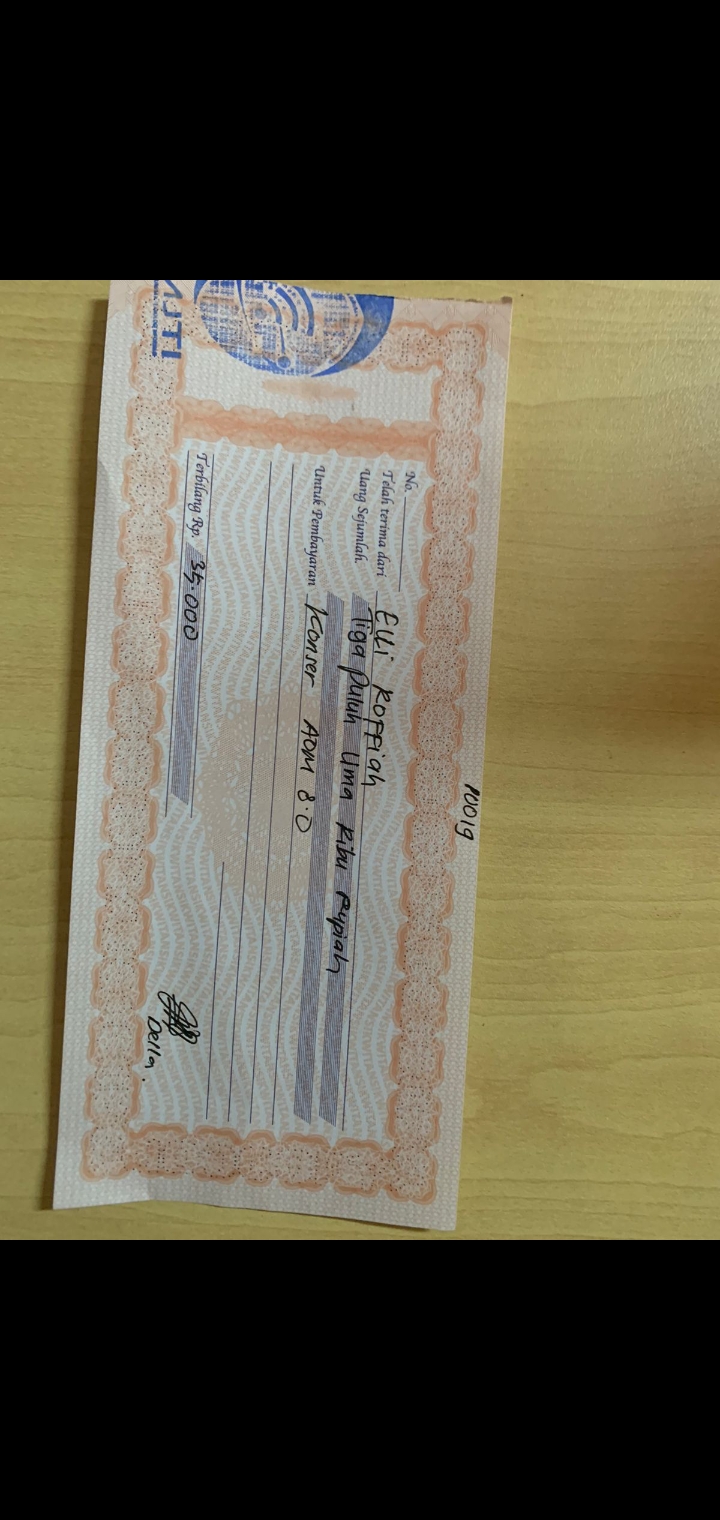 PU019
No.
Telah terima dari Elli Roffiah
Uang Sejumlah. Tiga Puluh Lima Ribu Rupiah
Untuk Pembayaran Konser AOM 8.0
Terbilang Rp. 35.000
Della.